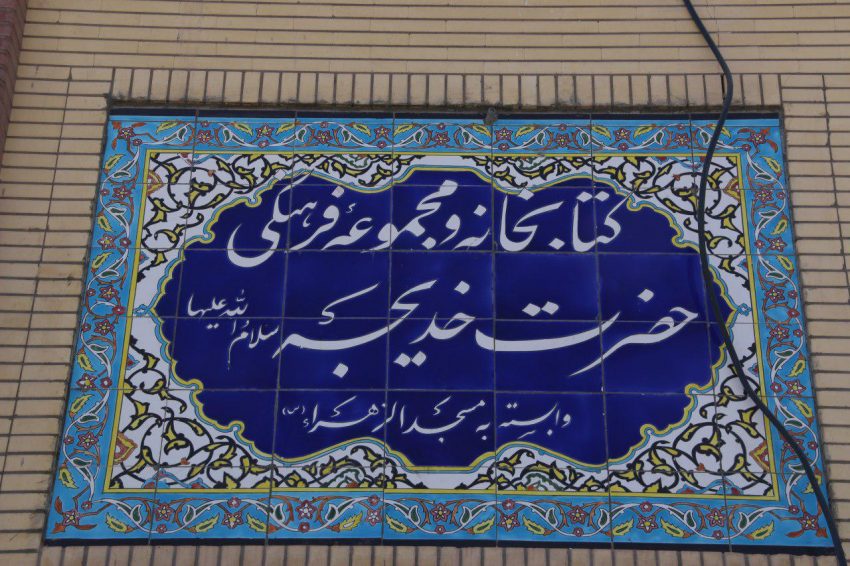 کتابخانه و مجموعهٔ فرهنگی
حضرت خدیجه سلام الله علیها
وابسته به مسجد الزهراء (س)